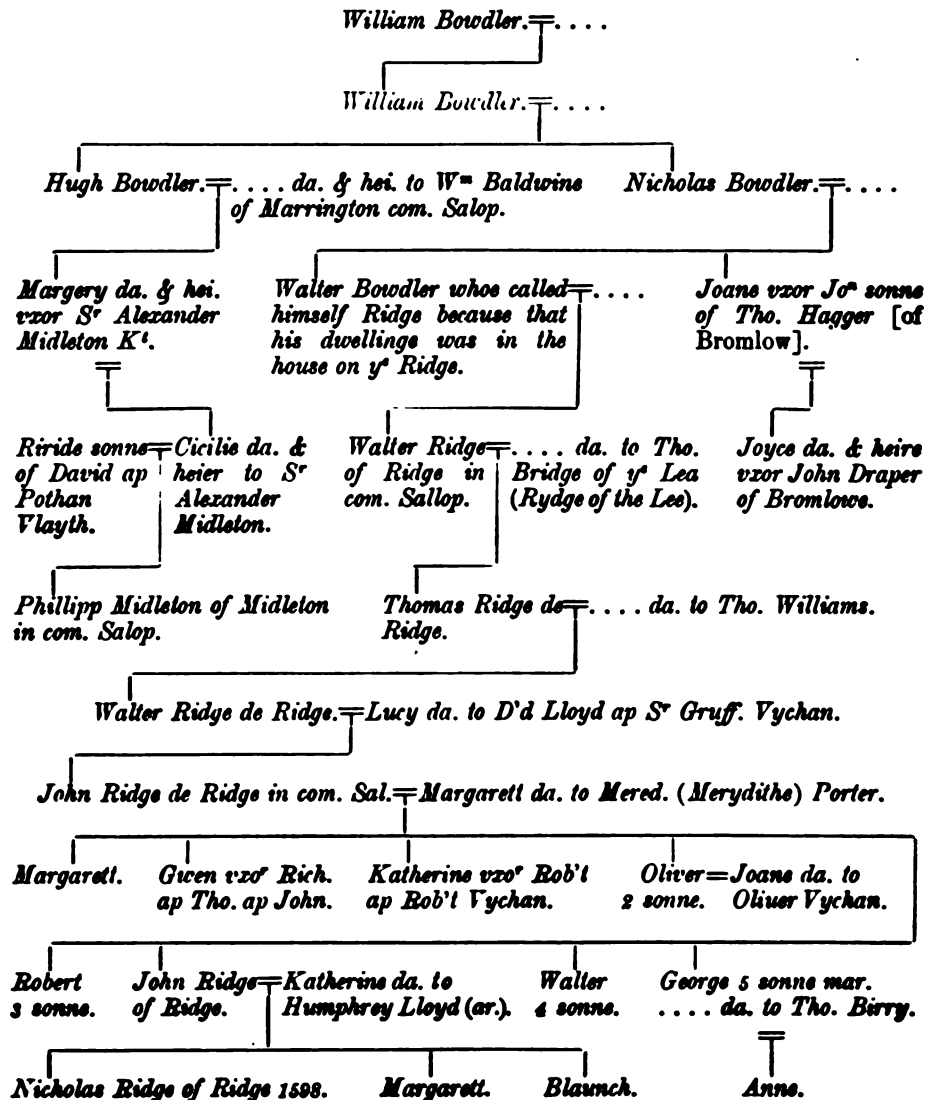 William Bowdler.=. . . .
William Bowdler.=. . . .
Hugh Bowdler.=. . . . da. & hei. to Wᵐ Baldwine
of Marrington com. Salop.
Nicholas Bowdler.=. . . .
Margery da. & hei.
vxor Sʳ Alexander
Midleton Kᵗ.
Walter Bowdler whoe called=. . . .
himself Ridge because that
his dwellinge was in the
house on yᵉ Ridge.
Joane vxor Joⁿ sonne
of Tho. Hagger [of
Bromlow].
Riride sonne=Cicilie da. &
of David ap heier to Sʳ
Pothan Alexander
Vlayth. Midleton.
Walter Ridge=. . . . da. to Tho.
of Ridge in Bridge of yᵉ Lea
com. Sallop. (Rydge of the Lee).
Joyce da. & heire
vxor John Draper
of Bromlowe.
Phillipp Midleton of Midleton
in com. Salop.
Thomas Ridge de=. . . . da. to Tho. Williams.
Ridge.
Walter Ridge de Ridge.=Lucy da. to D'd Lloyd ap Sʳ Gruff. Vychan.
John Ridge de Ridge in com. Sal.=Margarett da. to Mered. (Merydithe) Porter.
Margarett.
Gwen vxoʳ Rich.
ap Tho. ap John.
Katherine vxoʳ Rob't
ap Rob't Vychan.
Oliver=Joane da. to
2 sonne. Oliuer Vychan.
Robert
3 sonne.
John Ridge=Katherine da. to
of Ridge. Humphrey Lloyd (ar.).
Walter
4 sonne.
George 5 sonne mar.
. . . . da. to Tho. Birry.
Nicholas Ridge of Ridge 1598. Margarett. Blaunch. Anne.